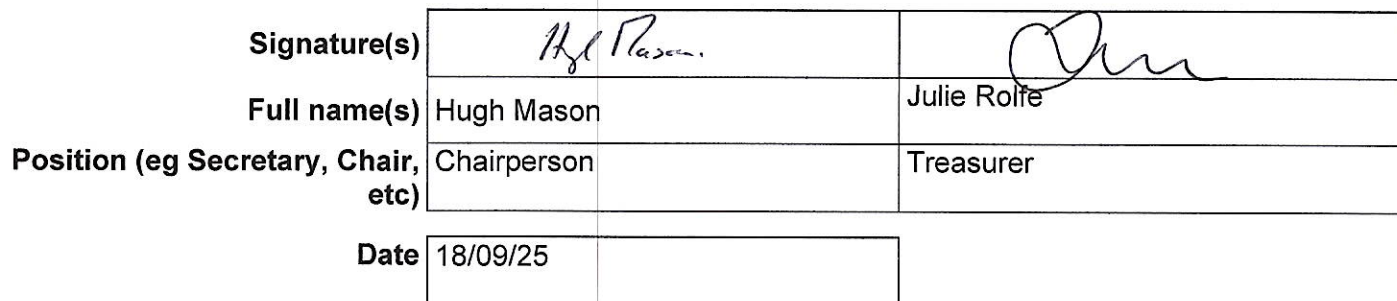 Signature(s) Hugh Mason.
Full name(s) Hugh Mason Julie Rolfe
Position (eg Secretary, Chair, Chairperson Treasurer
etc)
Date 18/09/25